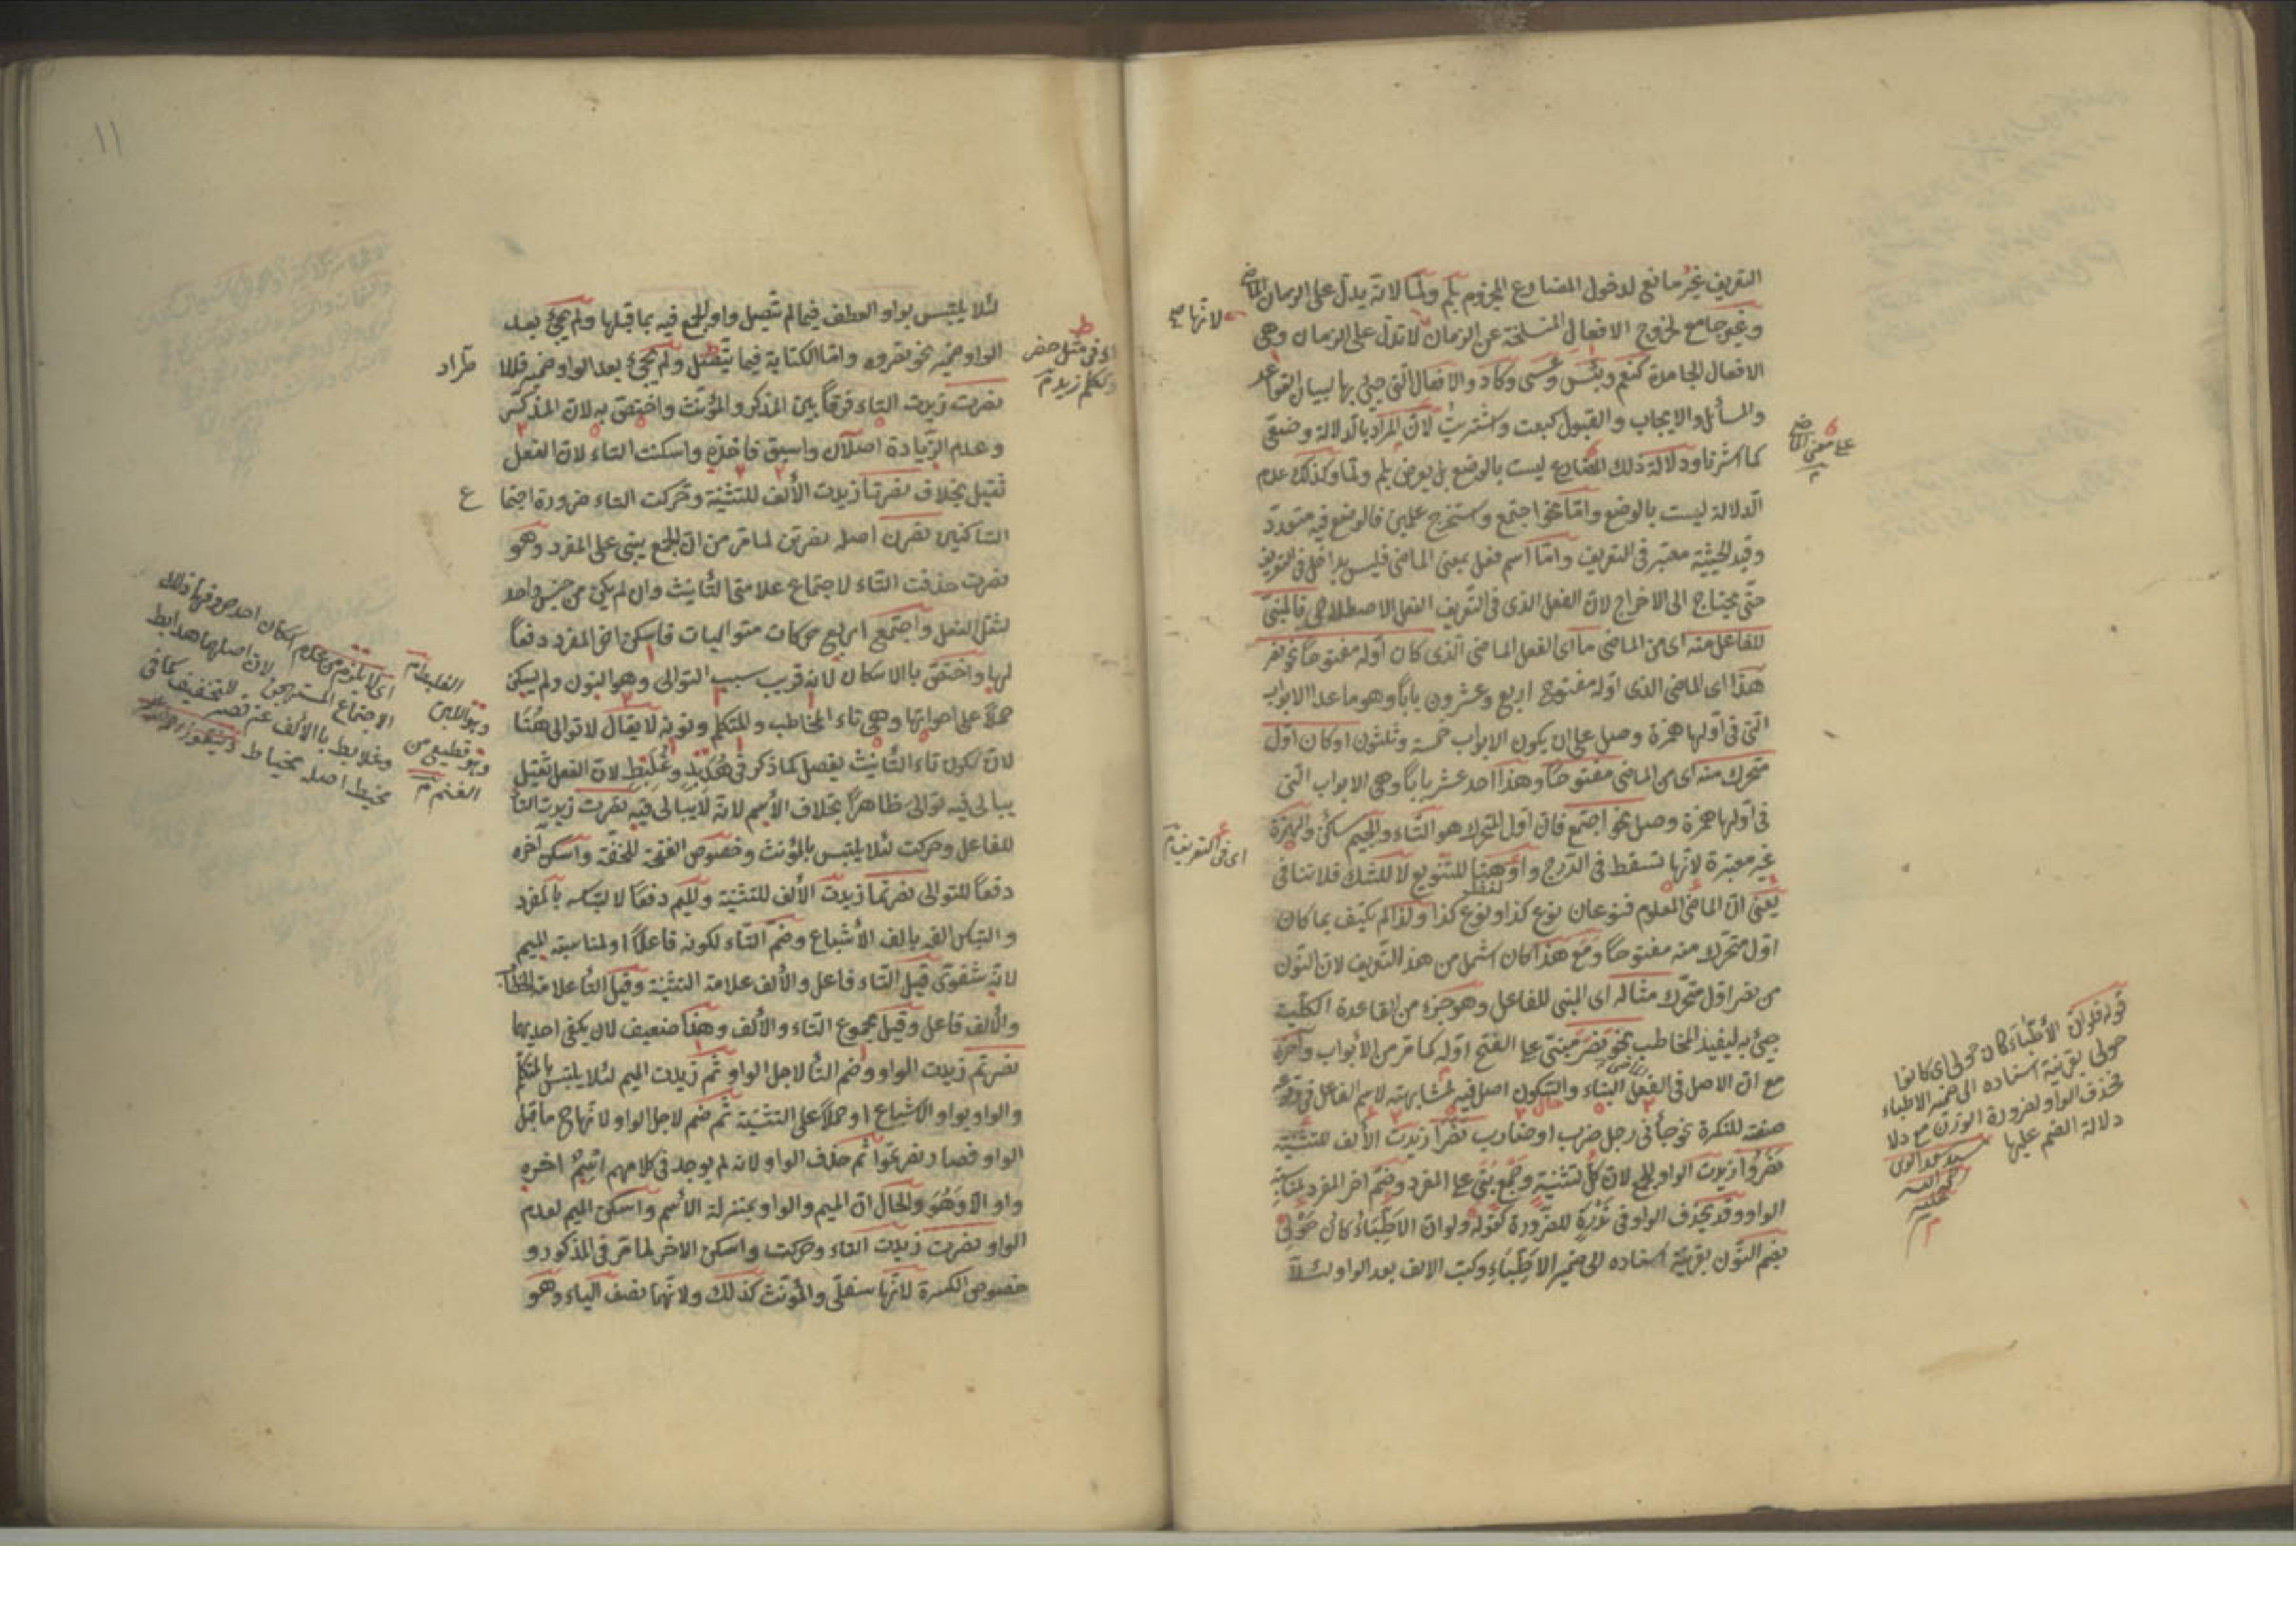 التعريف غير مانع لدخول المضارع المجزوم بلم ولما لانه يدل على الزمان الماضى
وغير جامع لخروج الافعال المنسلخة عن الزمان لا تدل على الزمان وهى
الافعال الجامدة كنعم وبئس وعسى وكاد والافعال التى جئ بها لبيان القواعد
والمسائل والايجاب والقبول كبعت واشتريت لان المراد بالدلالة وضعى
كما اشرنا ودلالة ذلك المضارع ليست بالوضع بل بعوض لم ولما وكذلك عدم
الدلالة ليست بالوضع واما نحو اجتمع واستخرج علمين فالوضع فيه متعدد
وقيد الحيثية معتبر فى التعريف واما اسم فعل بمعنى الماضى فليس بداخل فى التعريف
حتى يحتاج الى الاخراج لان الفعل الذى فى التعريف الفعل الاصطلاحى فالمبنى
للفاعل منه اى من الماضى ما اى الفعل الماضى الذى كان اوله مفتوحا نحو نصر
هذا اى الماضى الذى اوله مفتوح اربع وعشرون بابا وهو ما عدا الابواب
التى فى اولها همزة وصل على ان يكون الابواب خمسة وثلثون او كان اول
متحرك منه اى من الماضى مفتوحا وهذا احد عشر بابا وهى الابواب التى
فى اولها همزة وصل نحو اجتمع فان اول المتحرك هو التاء والجيم ساكن والهمزة
غير معتبرة لانها تسقط فى الدرج واو ههنا للتنويع لا للشك فلا تنافى
يعنى ان الماضى المعلوم فنوعان نوع كذا ونوع كذا ولذا لم يكتف بما كان
اول متحرك منه مفتوحا ومع هذا كان اشمل من هذ التعريف لان النون
من نصر اول متحرك مثاله اى المبنى للفاعل وهو جزء من القاعدة الكلية
جئ به ليفيد المخاطب نحو نصر مبنى على الفتح اوله كما مر من الأبواب وآخره
مع ان الاصل فى الفعل البناء والسكون اصل فيه لمشابهته لاسم الفاعل فى وقوعه
صفة للنكرة نحو جأنى رجل ضرب او ضارب نصرا زيدت الألف للتثنية
نصروا زيدت الواو للجمع لان كل تثنية وجمع بنى على المفرد وضم آخر المفرد لمناسبة
الواو وقد يحذف الواو فى ندرة للضرورة كقوله ولو ان الاطباء كان حولى
بضم النون بقرينة اسناده الى ضمير الاطباء وكتب الالف بعد الواو لئلا
لانها
على معنى الماضى
اى فى التعريف
قوله فلو ان الأطباء كان حولى اى كانوا
حولى بقرينة اسناده الى ضمير الاطباء
فحذف الواو لضرورة الوزن مع دلا
دلالة الضم عليها
رحمة الله
عليه
١١
لئلا يلتبس بواو العطف فيما لم تتصل واو الجمع فيه بما قبلها ولم يجئ بعد
الواو ضمير نحو نصروه واما الكتابة فيما يتصل ولم يجئ بعد الواو ضمير فللا
نصرت زيدت التاء فرقا بين المذكر والمؤنث واختص به لان المذكر
وعدم الزيادة اصلان واسبق فاخذه واسكنت التاء لان الفعل
ثقيل بخلاف نصرتا زيدت الألف للتثنية وحركت التاء ضرورة اجتما
الساكنين نصرن اصله نصرتن لما مر من ان الجمع يبنى على المفرد وهو
نصرت حذفت التاء لاجتماع علامتى التأنيث وان لم يكن من جنس واحد
لثقل الفعل واجتمع اربع حركات متواليات فاسكن آخر المفرد دفعا
لها واختص بالاسكان لانه قريب سبب التوالى وهو النون ولم يسكن
حملا على اخواتها وهى تاء المخاطب والمتكلم ونونه لا يقال لا توالى هنا
لان تكون تاء التأنيث يفصل كما ذكر فى هدبد وعلبط لان الفعل ثقيل
يبالى فيه توالى ظاهرا بخلاف الأسم لانه لا يبالى فيه نصرت زيدت التاء
للفاعل وحركت لئلا يلتبس بالمؤنث وخصوص الفتحة للخفة واسكن آخره
دفعا للتوالى نصرتما زيدت الألف للتثنية والميم دفعا لالتباسه بالمفرد
والتبس الفه بالف الأشباع وضم التاء لكونه فاعلا او لمناسبته الميم
لانه شفوى قيل التاء فاعل والألف علامة التثنية وقيل التأ علامة الخطاب
والألف فاعل وقيل مجموع التاء والألف وهذا ضعيف لان يكفى احديهما
نصرتم زيدت الواو وضم التأ لاجل الواو ثم زيدت الميم لئلا يلتبس بالمتكلم
والواو بواو الاشباع او حملا على التثنية ثم ضم لاجل الواو لانها ح ما قبل
الواو فصار نصرتموا ثم حذف الواو لانه لم يوجد فى كلامهم اسم آخره
واو الا وهو والحال ان الميم والواو بمنزلة الأسم واسكن الميم لعدم
الواو نصرت زيدت التاء وحركت واسكن الاخر لما مر فى المذكور و
خصوص الكسرة لانها سفلى والمؤنث كذلك ولانهما نصف الياء وهو
اى فى مثل حضر
وتكلم زيد
ع
اى لا يلزم من عدم امكان احد حروفها ذلك
الاجتماع المستهجن لان اصلهما هدابط
وعلابط بالألف عنه للتخفيف كما فى
مخيط اصله مخياط
الغليظ
وهو اللبن
وهو قطيع من
الغنم